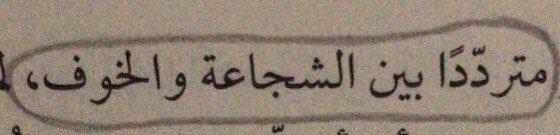 مترددًا بين الشجاعة والخوف،